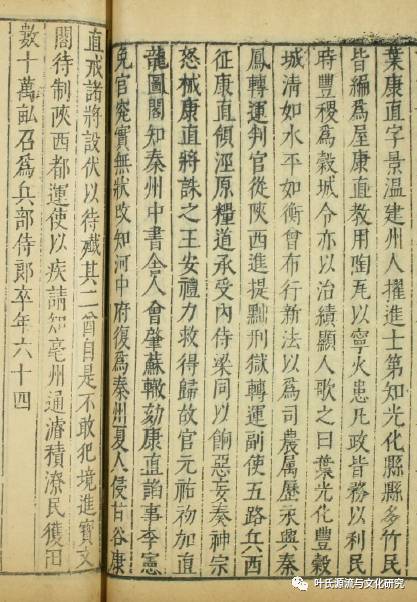 葉康直字景温建州人擢進士第知光化縣縣多竹民
皆編爲屋康直教用陶瓦以寧火患凡政皆務以利民
時豐稷爲穀城令亦以治績顯人歌之曰葉光化豐穀
城清如水平如衡曾布行新法以爲司農屬歷永興秦
鳳轉運判官從陝西進提點刑獄轉運副使五路兵西
征康直領涇原糧道承受內侍梁同以餉惡妄奏神宗
怒械康直將誅之王安禮力救得歸故官元祐初加直
龍圖閣知秦州中書舍人曾肇蘇轍劾康直諂事李憲
免官究實無狀改知河中府復爲秦州夏人侵甘谷康
直戒諸將設伏以待殲其二酋自是不敢犯境進寶文
閣待制陝西都運使以疾請知亳州通濬積潦民獲田
數十萬畝召爲兵部侍郎卒年六十四
叶氏源流与文化研究